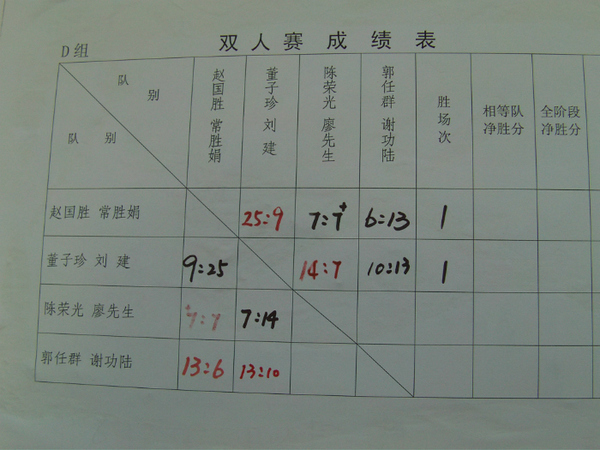 双人赛成绩表
D组
队 别
队 别
赵国胜 常胜娟
董子珍 刘 建
陈荣光 廖先生
郭任群 谢功陆
胜场次
相等队净胜分
全阶段净胜分
赵国胜 常胜娟 25:9 7:7+ 6:13 1
董子珍 刘 建 9:25 14:7 10:13 1
陈荣光 廖先生 +7:7 7:14
郭任群 谢功陆 13:6 13:10